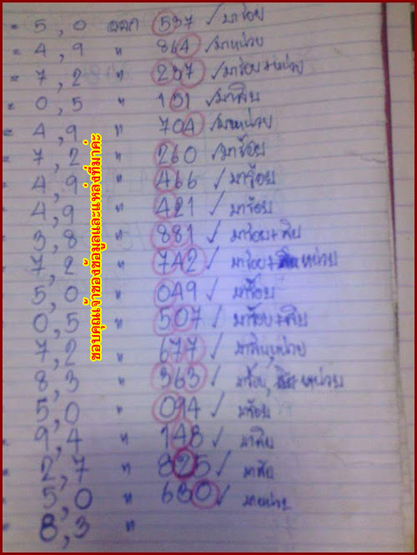 = 5,0 ออก 537 ✓ มาร้อย
= 4,9 " 864 ✓ มาหน่วย
= 7,2 " 237 ✓ มาร้อย+หน่วย
= 0,5 " 151 ✓ มาสิบ
= 4,9 " 704 ✓ มาหน่วย
= 7,2 " 260 ✓ มาร้อย
= 4,9 " 466 ✓ มาร้อย
4,9 " 421 ✓ มาร้อย
3,8 " 881 ✓ มาร้อย+สิบ
7,2 " 742 ✓ มาร้อย+หน่วย
5,0 " 049 ✓ มาร้อย
0,5 " 507 ✓ มาร้อย+สิบ
7,2 " 677 ✓ มาสิบหน่วย
8,3 " 363 ✓ มาร้อย, หน่วย
5,0 " 014 ✓ มาร้อย
9,4 " 148 ✓ มาสิบ
2,7 " 825 ✓ มาสิบ
5,0 " 630 ✓ มาหน่วย
8,3 "